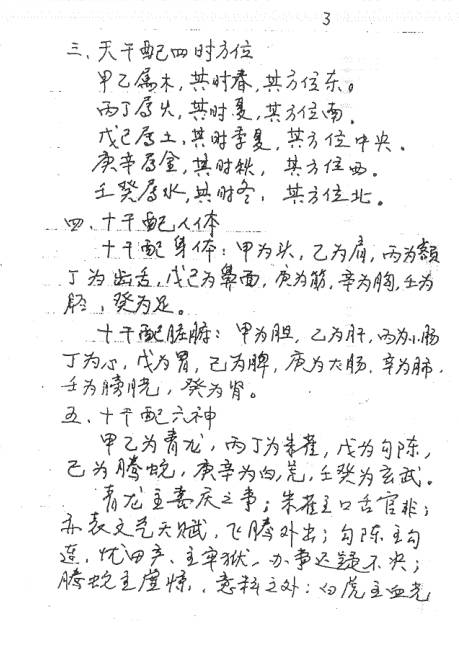 3
三、天干配四时方位
甲乙属木,其时春,其方位东。
丙丁属火,其时夏,其方位南.
戊己属土,其时季夏,其方位中央.
庚辛属金,其时秋, 其方位西.
壬癸属水,其时冬, 其方位北.
四、十干配人体
十干配身体:甲为头,乙为肩,丙为额
丁为齿舌,戊己为鼻面,庚为筋,辛为胸,壬为
胫,癸为足。
十干配脏腑:甲为胆,乙为肝,丙为小肠
丁为心,戊为胃,己为脾,庚为大肠,辛为肺.
壬为膀胱,癸为肾。
五、十干配六神
甲乙为青龙,丙丁为朱雀,戊为勾陈,
己为腾蛇,庚辛为白虎,壬癸为玄武.
青龙主喜庆之事;朱雀主口舌官非;
亦表文艺天赋,飞腾外出;勾陈主勾
连,忧田产、主牢狱、办事迟疑不决;
腾蛇主虚惊,意料之外:白虎主血光